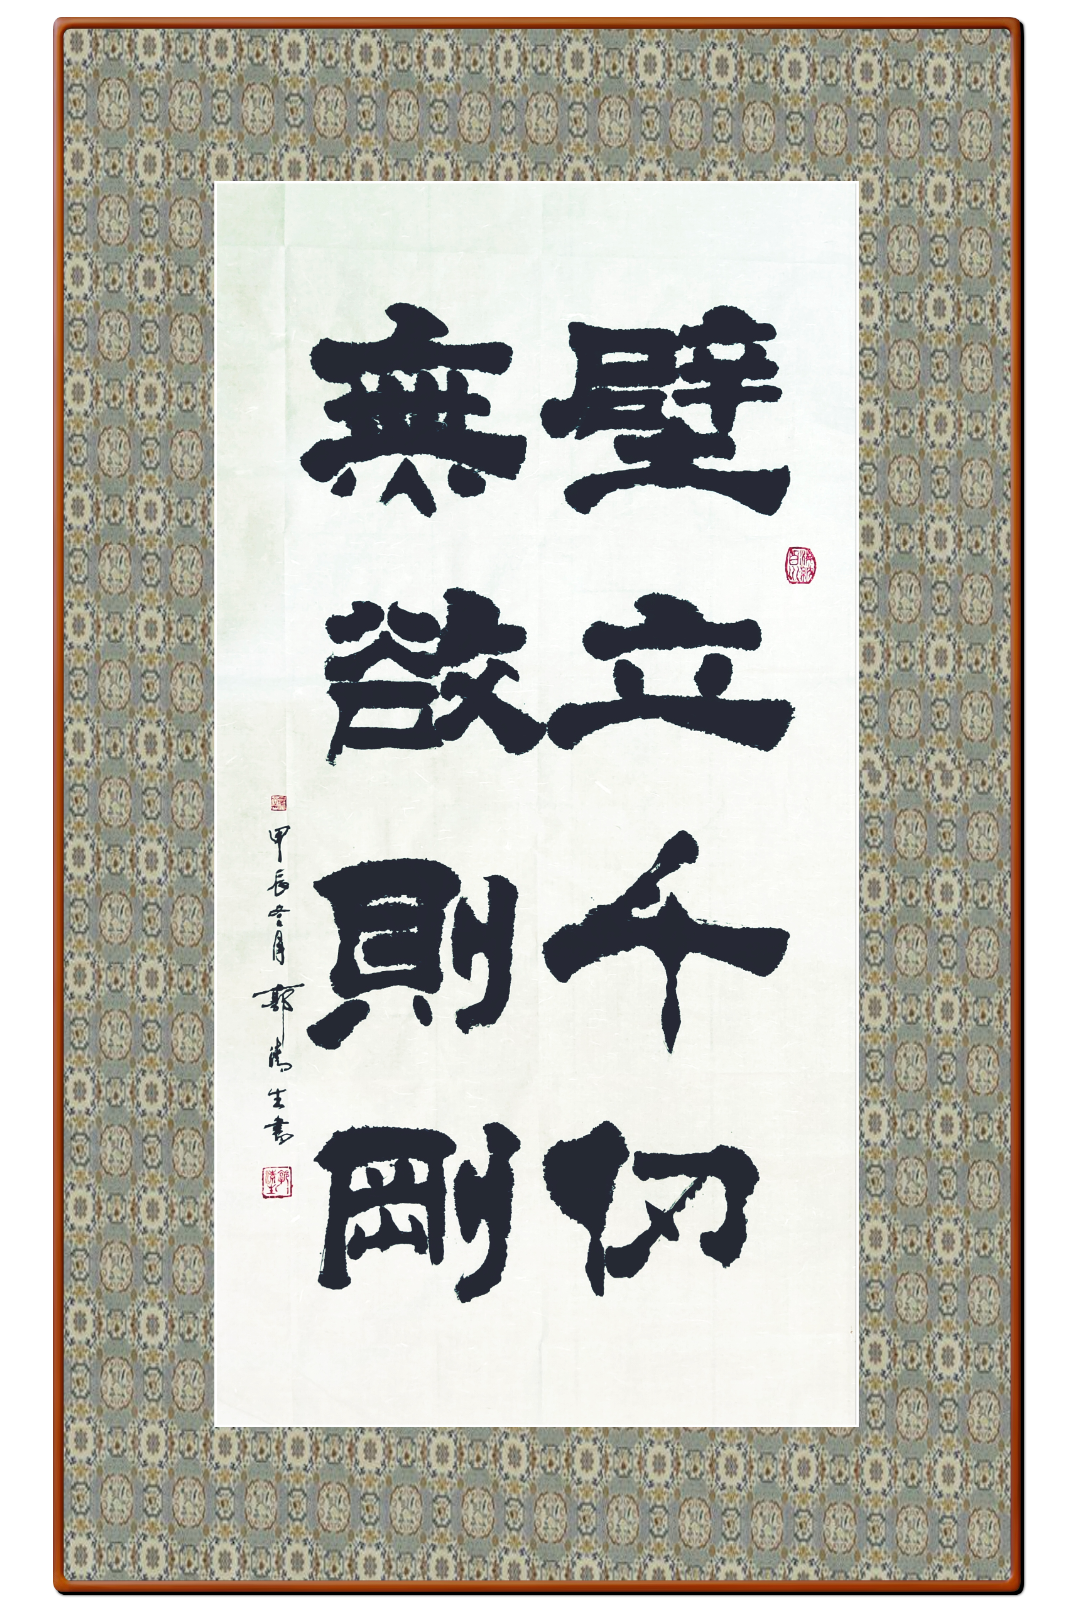 壁立千仞
無欲則剛
甲辰冬月郭濤生書